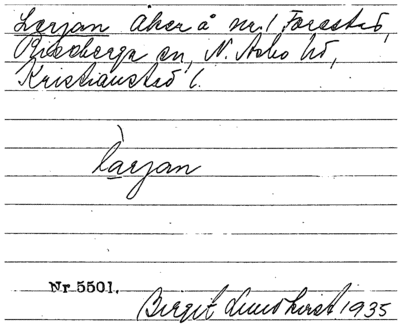 Lerjan åker å nr. 1 Forestad,
Riseberga sn, N. Åsbo hd,
Kristianstad l.
lærjan
Nr 5501.
Birgit Lundkvist 1935